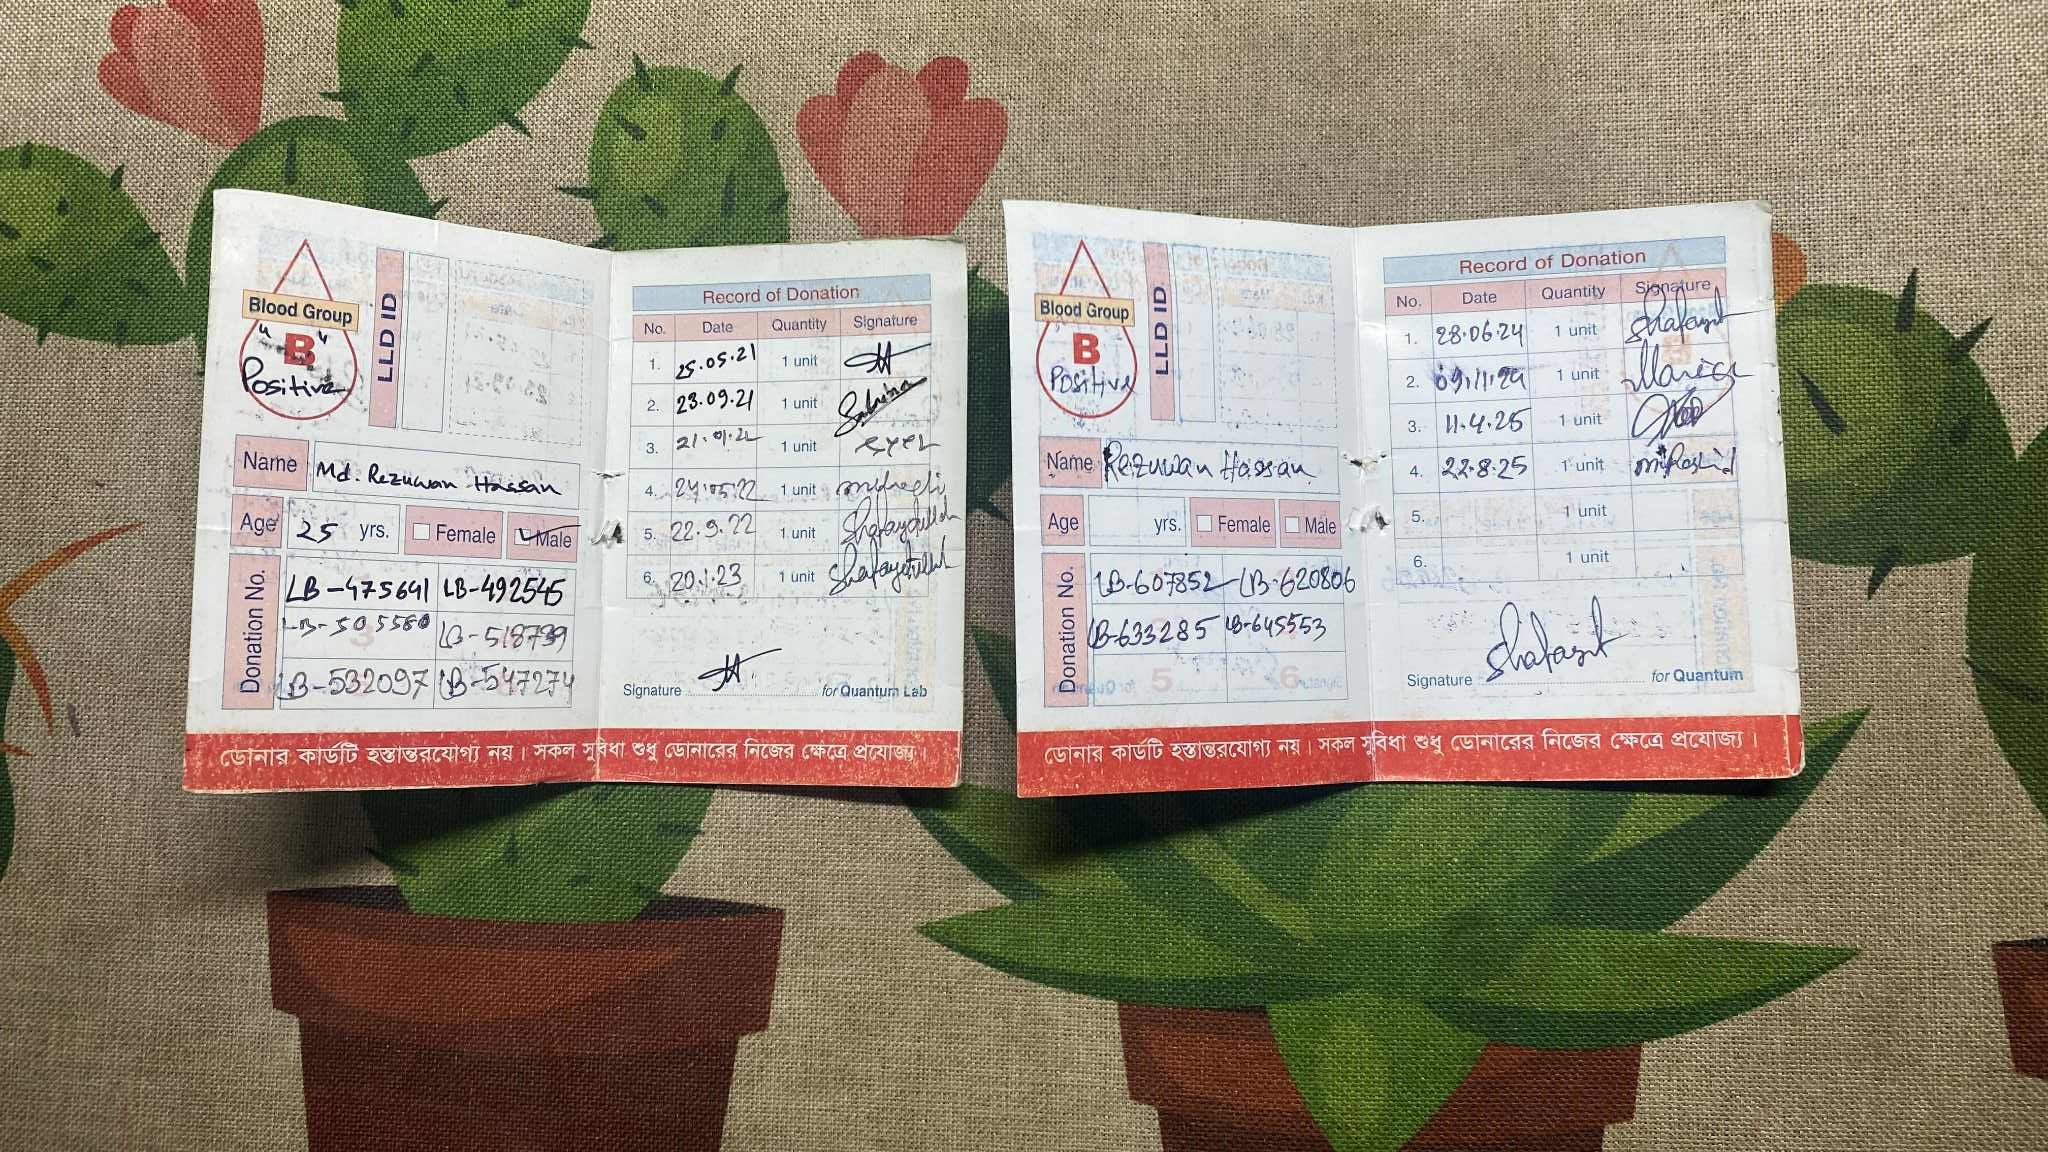 Blood Group
"B"
Positive
LLD ID
Name Md. Rezuwan Hassan
Age 25 yrs. Female Male
Donation No.
LB-475641 LB-492545
LB-505580 LB-518739
LB-532097 LB-547274
Record of Donation
No. Date Quantity Signature
1. 25.05.21 1 unit
2. 23.09.21 1 unit Sabrina
3. 21.01.22 1 unit
4. 24.05.22 1 unit
5. 22.9.22 1 unit Shafayetullah
6. 20.1.23 1 unit Shafayetullah
Signature for Quantum Lab
ডোনার কার্ডটি হস্তান্তরযোগ্য নয়। সকল সুবিধা শুধু ডোনারের নিজের ক্ষেত্রে প্রযোজ্য।
Blood Group
B
Positive
LLD ID
Name Rezuwan Hassan
Age yrs. Female Male
Donation No.
LB-607852 LB-620806
LB-633285 LB-645553
5 6
Record of Donation
No. Date Quantity Signature
1. 28.06.24 1 unit Shafayet
2. 09.11.24 1 unit
3. 11.4.25 1 unit
4. 22.8.25 1 unit
5. 1 unit
6. 1 unit
Signature Shafayet for Quantum
ডোনার কার্ডটি হস্তান্তরযোগ্য নয়। সকল সুবিধা শুধু ডোনারের নিজের ক্ষেত্রে প্রযোজ্য।